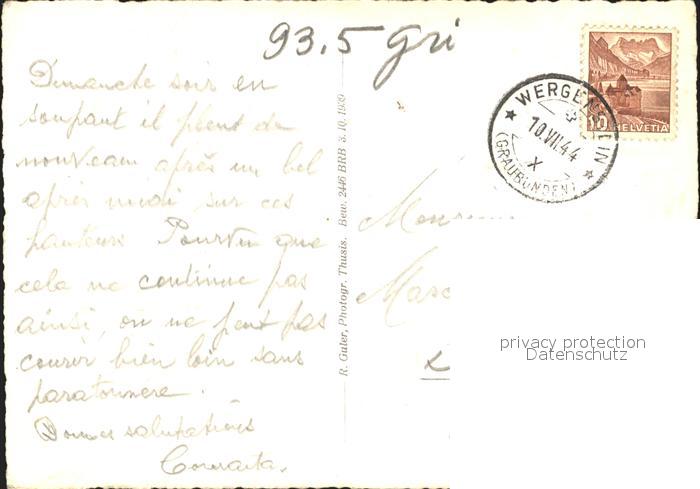 93.5 gri
Dimanche soir en
soupant il pleut de
nouveau après un bel
après midi sur ces
hauteurs. Pourvu que
cela ne continue pas
ainsi, on ne peut pas
courir bien loin sans
paratonnere.
Bonnes salutations
R. Guler, Photogr. Thusis. Bew. 2446 BRB 3. 10. 1939
WERGENSTEIN
10.VII.44
X
(GRAUBÜNDEN)
10 HELVETIA
privacy protection
Datenschutz